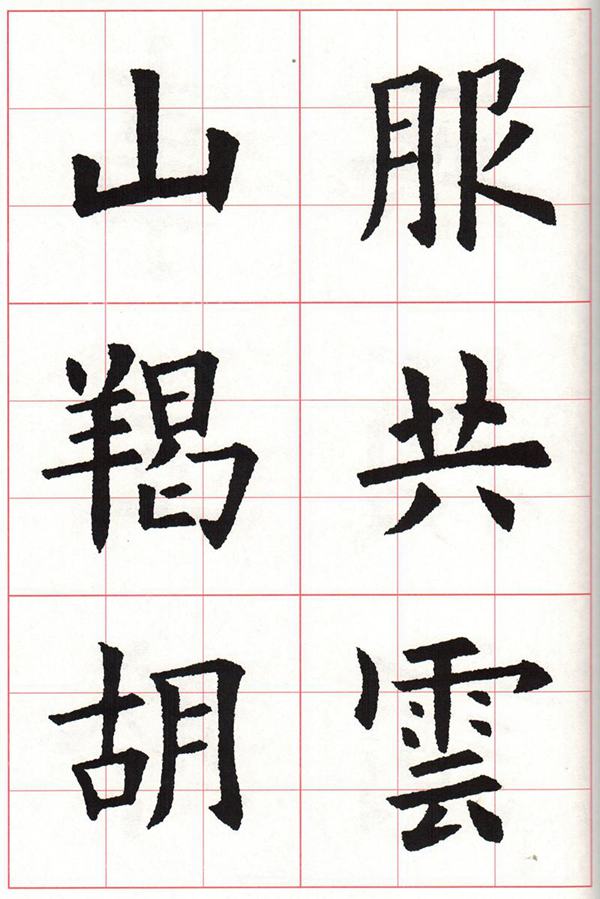 服共雲
山羯胡